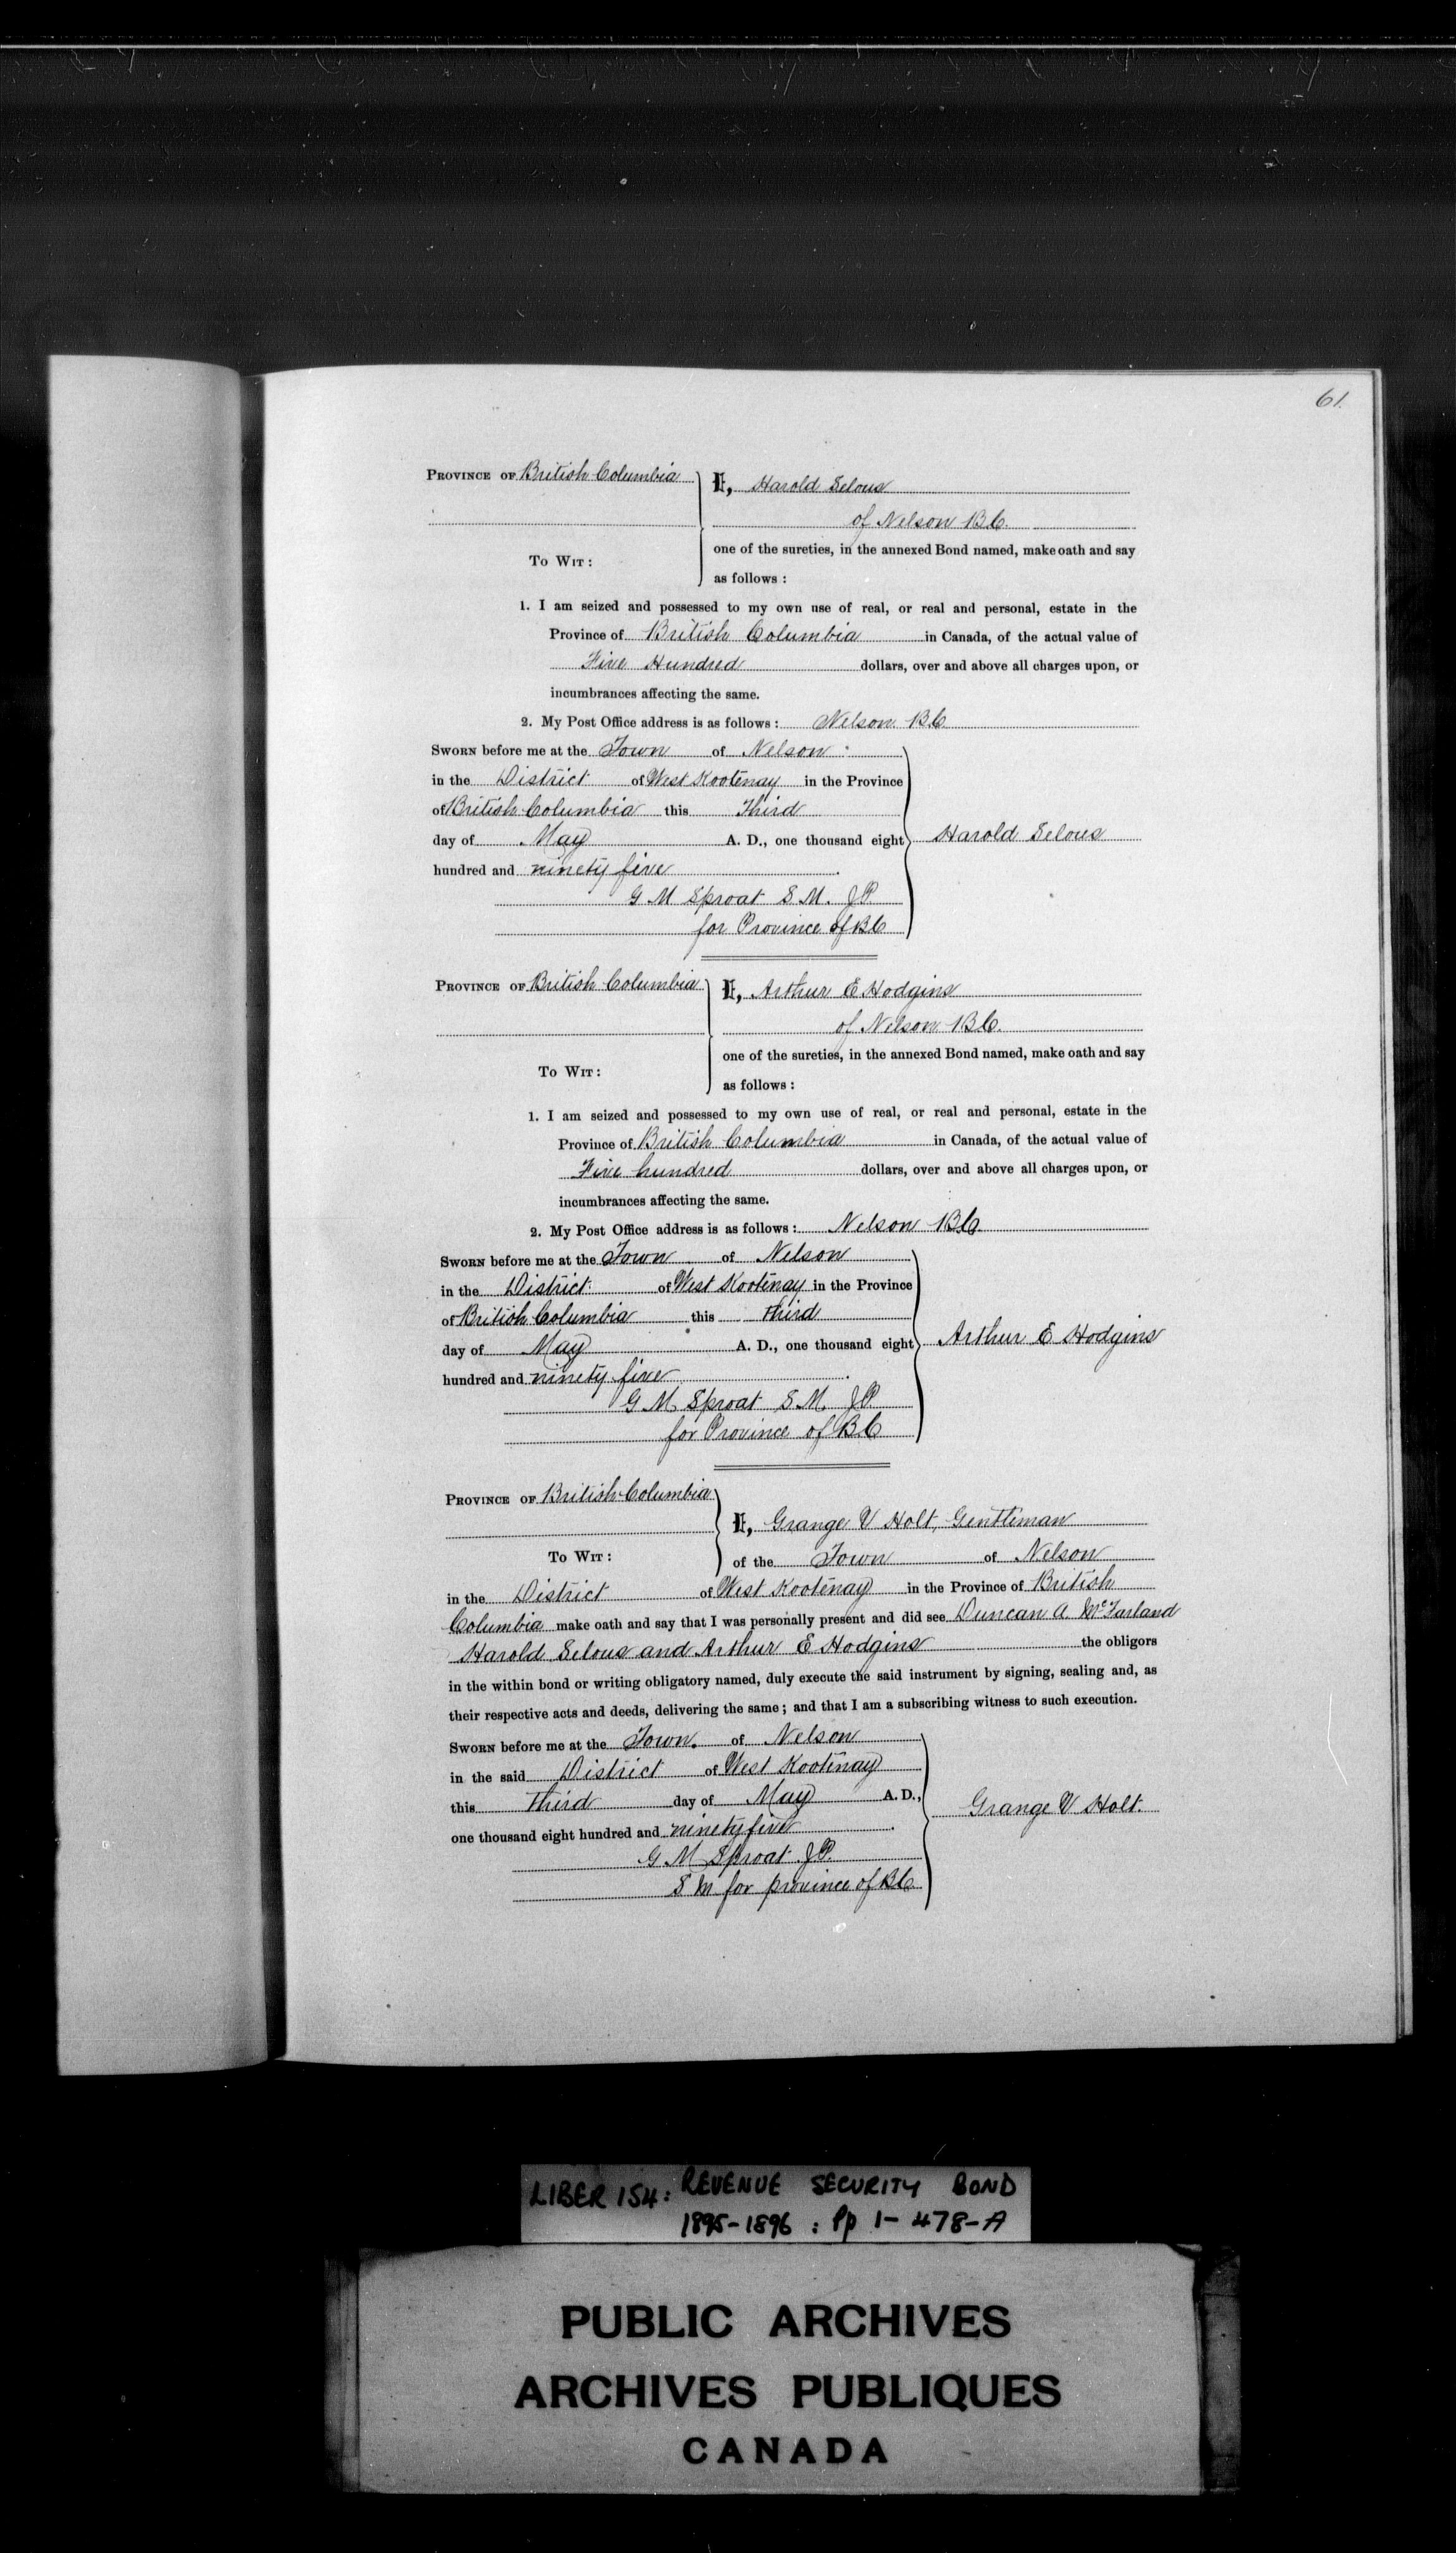 61.
PROVINCE OF British Columbia
I, Harold Selous
of Nelson BC.
TO WIT:
one of the sureties, in the annexed Bond named, make oath and say
as follows:
1. I am seized and possessed to my own use of real, or real and personal, estate in the
Province of British Columbia in Canada, of the actual value of
Five Hundred dollars, over and above all charges upon, or
incumbrances affecting the same.
2. My Post Office address is as follows: Nelson BC
SWORN before me at the Town of Nelson
in the District of West Kootenay in the Province
of British Columbia this Third
day of May A. D., one thousand eight
hundred and ninety five.
Harold Selous
G M Sproat S.M. JP
for Province of BC
PROVINCE OF British Columbia
I, Arthur E Hodgins
of Nelson BC.
TO WIT:
one of the sureties, in the annexed Bond named, make oath and say
as follows:
1. I am seized and possessed to my own use of real, or real and personal, estate in the
Province of British Columbia in Canada, of the actual value of
Five hundred dollars, over and above all charges upon, or
incumbrances affecting the same.
2. My Post Office address is as follows: Nelson BC.
SWORN before me at the Town of Nelson
in the District of West Kootenay in the Province
of British Columbia this third
day of May A. D., one thousand eight
hundred and ninety five.
Arthur E Hodgins
G M. Sproat S M. JP
for Province of BC
PROVINCE OF British Columbia
TO WIT:
I, Grange V Holt, Gentleman
of the Town of Nelson
in the District of West Kootenay in the Province of British
Columbia make oath and say that I was personally present and did see Duncan A. McFarland
Harold Selous and Arthur E Hodgins the obligors
in the within bond or writing obligatory named, duly execute the said instrument by signing, sealing and, as
their respective acts and deeds, delivering the same; and that I am a subscribing witness to such execution.
SWORN before me at the Town. of Nelson
in the said District of West Kootenay
this third day of May A. D.,
one thousand eight hundred and ninety five.
Grange V Holt.
G M Sproat JP.
S M for province of BC.
LIBER 154: REVENUE SECURITY BOND
1895-1896 : Pp 1- 478-A
PUBLIC ARCHIVES
ARCHIVES PUBLIQUES
CANADA